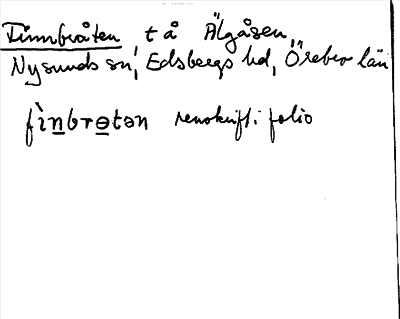 Finnbråten t å Älgåsen,
Nysunds sn, Edsbergs hd, Örebro län
fìnbrɵtən renskrift i folio